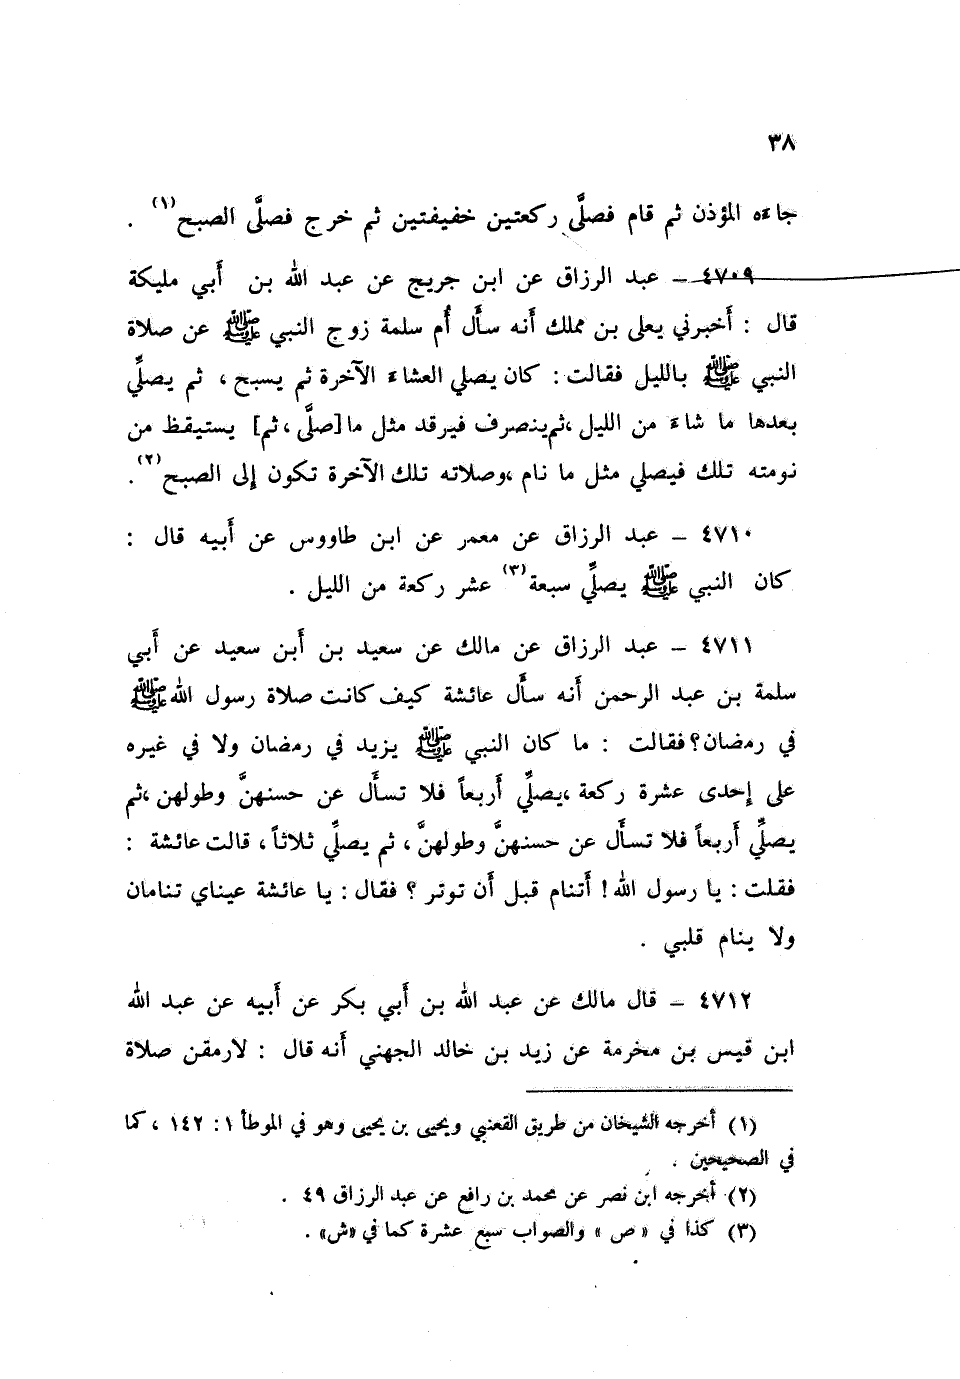 ٣٨
جاءه المؤذن ثم قام فصلَّى ركعتين خفيفتين ثم خرج فصلَّى الصبح(١) .
٤٧٠٩ – عبد الرزاق عن ابن جريج عن عبد الله بن أَبي مليكة
قال : أَخبرني يعلى بن مملك أَنه سأَل أُم سلمة زوج النبي ﷺ عن صلاة
النبي ﷺ بالليل فقالت : كان يصلي العشاء الآخرة ثم يسبح ، ثم يصلِّي
بعدها ما شاء من الليل ، ثم ينصرف فيرقد مثل ما [صلَّى ، ثم] يستيقظ من
نومته تلك فيصلي مثل ما نام ، وصلاته تلك الآخرة تكون إلى الصبح(٢) .
٤٧١٠ – عبد الرزاق عن معمر عن ابن طاووس عن أَبيه قال :
كان النبي ﷺ يصلِّي سبعة(٣) عشر ركعة من الليل .
٤٧١١ – عبد الرزاق عن مالك عن سعيد بن أَبن سعيد عن أَبي
سلمة بن عبد الرحمن أَنه سأَل عائشة كيف كانت صلاة رسول الله ﷺ
في رمضان؟ فقالت : ما كان النبي ﷺ يزيد في رمضان ولا في غيره
على إحدى عشرة ركعة ، يصلِّي أَربعاً فلا تسأَل عن حسنهنَّ وطولهن ، ثم
يصلِّي أَربعاً فلا تسأَل عن حسنهنَّ وطولهنَّ ، ثم يصلِّي ثلاثاً ، قالت عائشة :
فقلت : يا رسول الله ! أَتنام قبل أَن توتر ؟ فقال : يا عائشة عيناي تنامان
ولا ينام قلبي .
٤٧١٢ – قال مالك عن عبد الله بن أَبي بكر عن أَبيه عن عبد الله
ابن قيس بن مخرمة عن زيد بن خالد الجهني أَنه قال : لارمقن صلاة
(١) أخرجه الشيخان من طريق القعنبي ويحيى بن يحيى وهو في الموطأ ١ : ١٤٢ ، كما
في الصحيحين .
(٢) أخرجه ابن نصر عن محمد بن رافع عن عبد الرزاق ٤٩ .
(٣) كذا في « ص » والصواب سبع عشرة كما في «ش» .